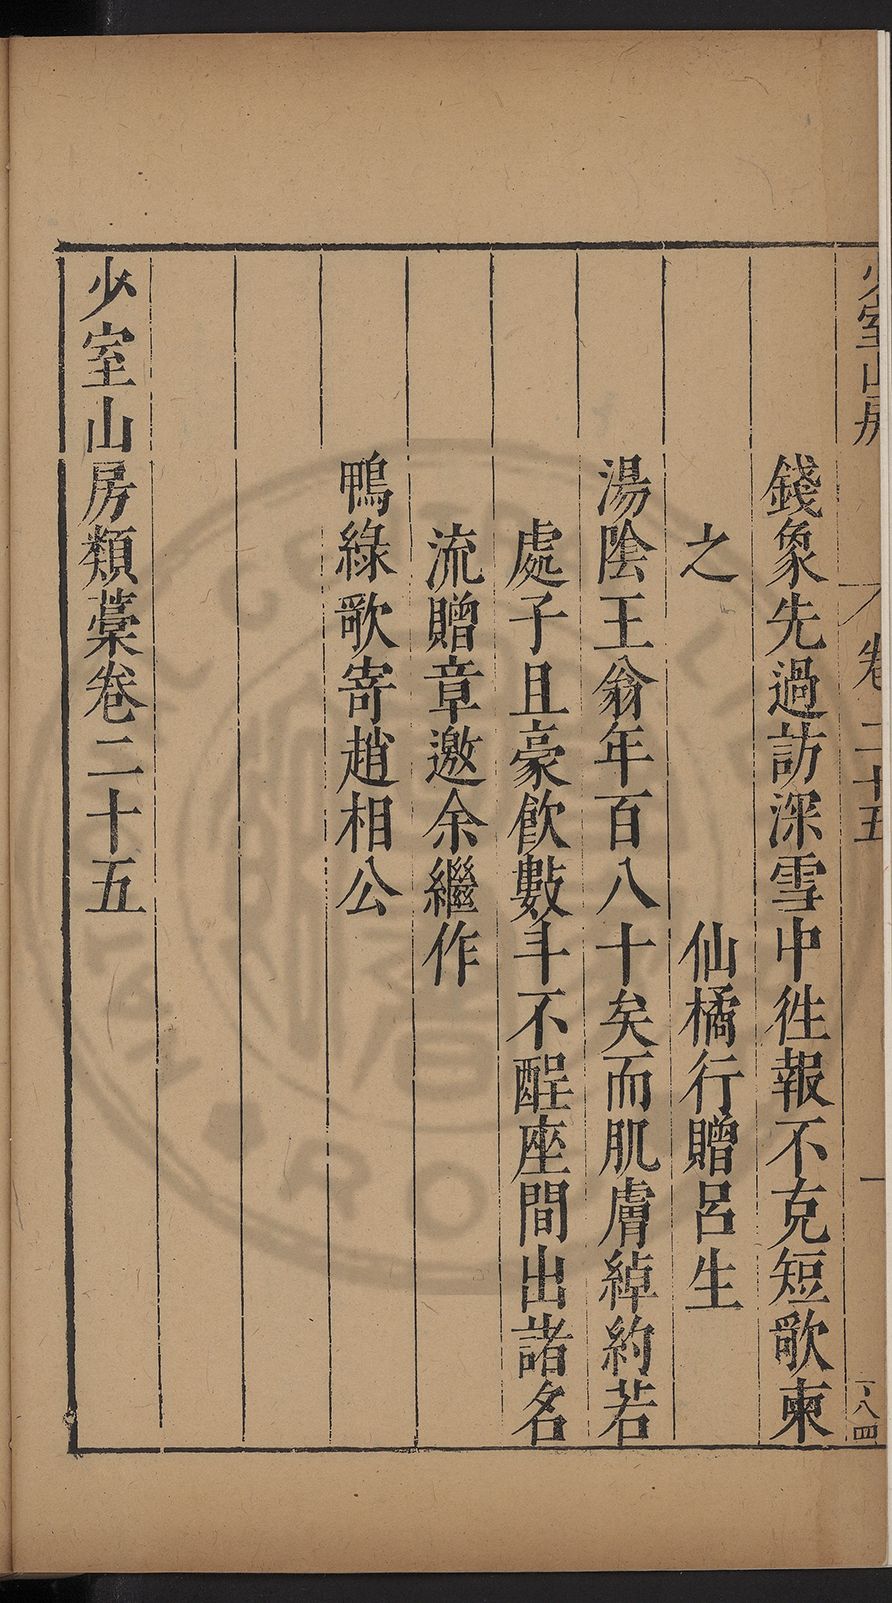 少室山房
卷二十五
一
一八四
錢象先過訪深雪中徃報不克短歌柬
之　仙橘行贈呂生
湯陰王翁年百八十矣而肌膚綽約若
處子且豪飮數斗不醒座間出諸名
流贈章邀余繼作
鴨綠歌寄趙相公
少室山房類藁卷二十五